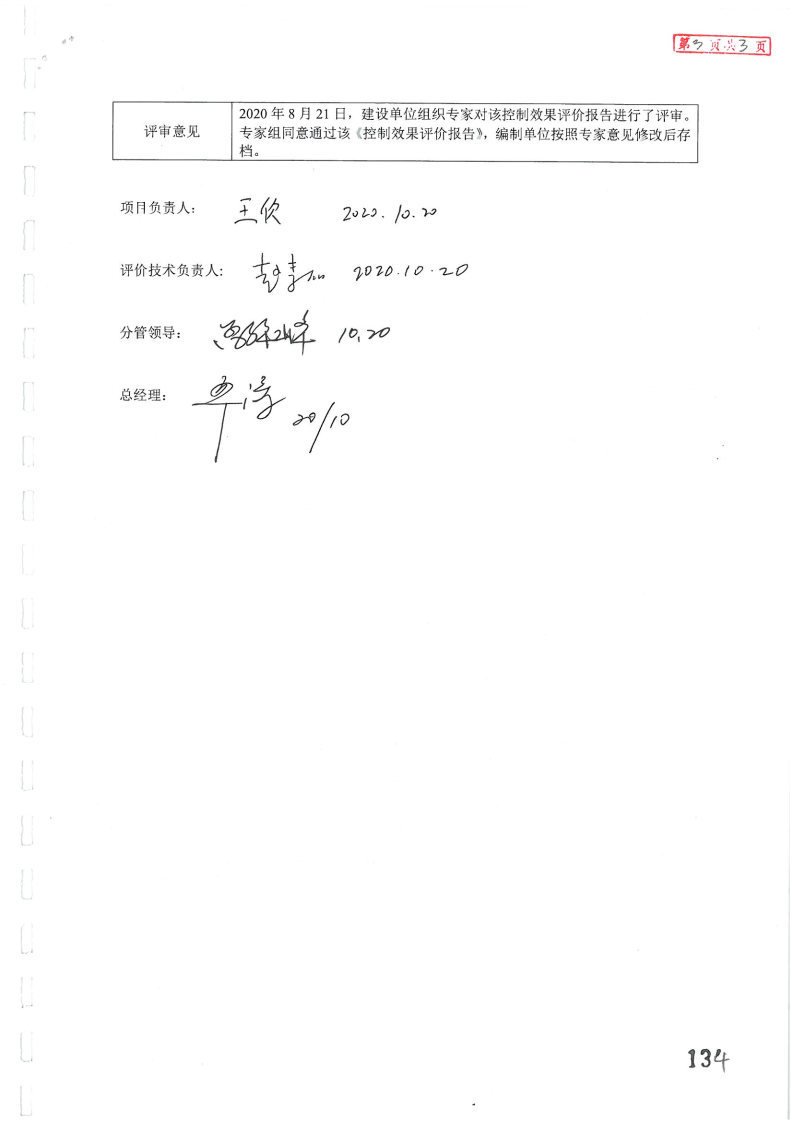 第3页共3页
评审意见
2020 年 8 月 21 日，建设单位组织专家对该控制效果评价报告进行了评审。
专家组同意通过该《控制效果评价报告》，编制单位按照专家意见修改后存
档。
项目负责人： 王欣 2020.10.20
评价技术负责人： 2020.10.20
分管领导： 10.20
总经理： 20/10
134